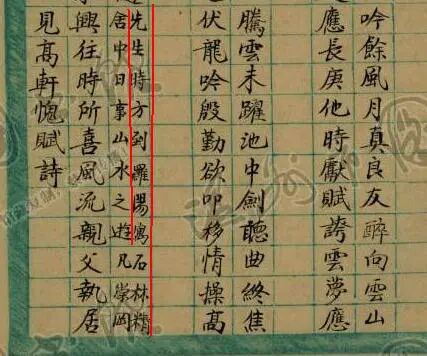 吟餘風月真良友醉向雲山
應長庚他時獻賦誇雲夢應
騰雲未躍池中劍聽曲終焦
伏龍吟殷勤欲叩移情操高
先生時方到羅陽寓石林精
舍中日事山水之遊凡崇岡
興往時所喜風流親父執居
見高軒愧賦詩